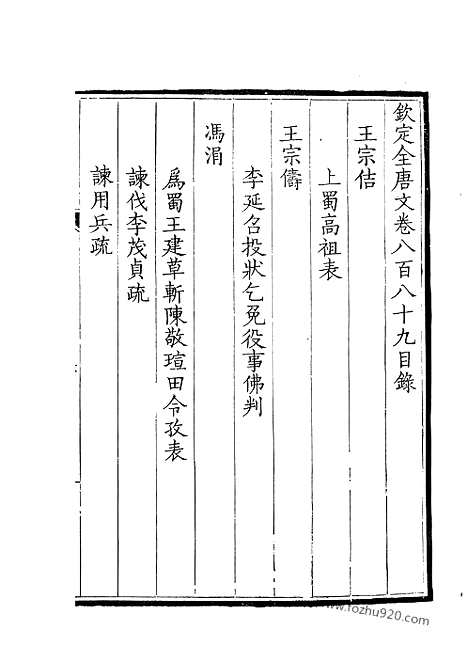 欽定全唐文卷八百八十九目錄
王宗佶
上蜀高祖表
王宗儔
李延召投狀乞免役事佛判
馮涓
爲蜀王建草斬陳敬瑄田令孜表
諫伐李茂貞疏
諫用兵疏
www.fozhu920.com